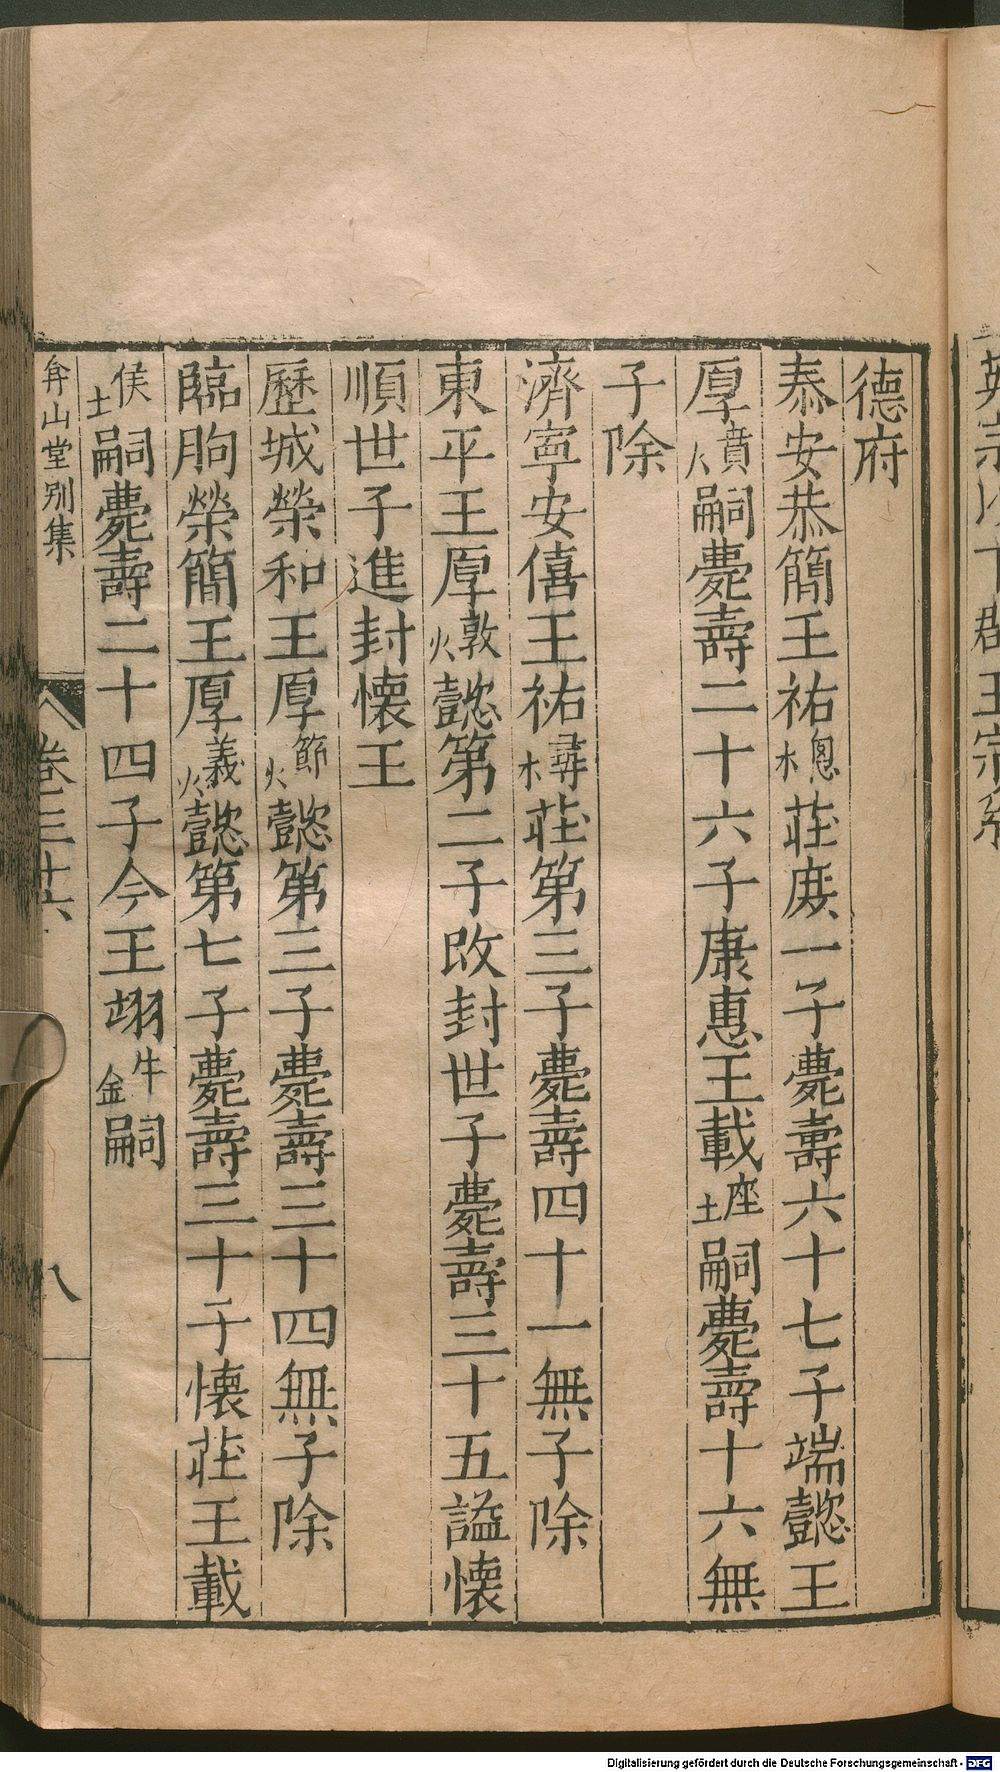 德府
泰安恭簡王祐木恩莊庶一子薨壽六十七子端懿王
厚火燌嗣薨壽二十六子康惠王載土座嗣薨壽十六無
子除
濟寧安僖王祐木尋莊第三子薨壽四十一無子除
東平王厚火敦懿第二子改封世子薨壽三十五謚懷
順世子進封懷王
歷城榮和王厚火節懿第三子薨壽三十四無子除
臨朐榮簡王厚火義懿第七子薨壽三十子懷莊王載
土侯嗣薨壽二十四子今王翊金牛嗣
弇山堂別集
卷三十六
八
Digitalisierung gefördert durch die Deutsche Forschungsgemeinschaft - DFG